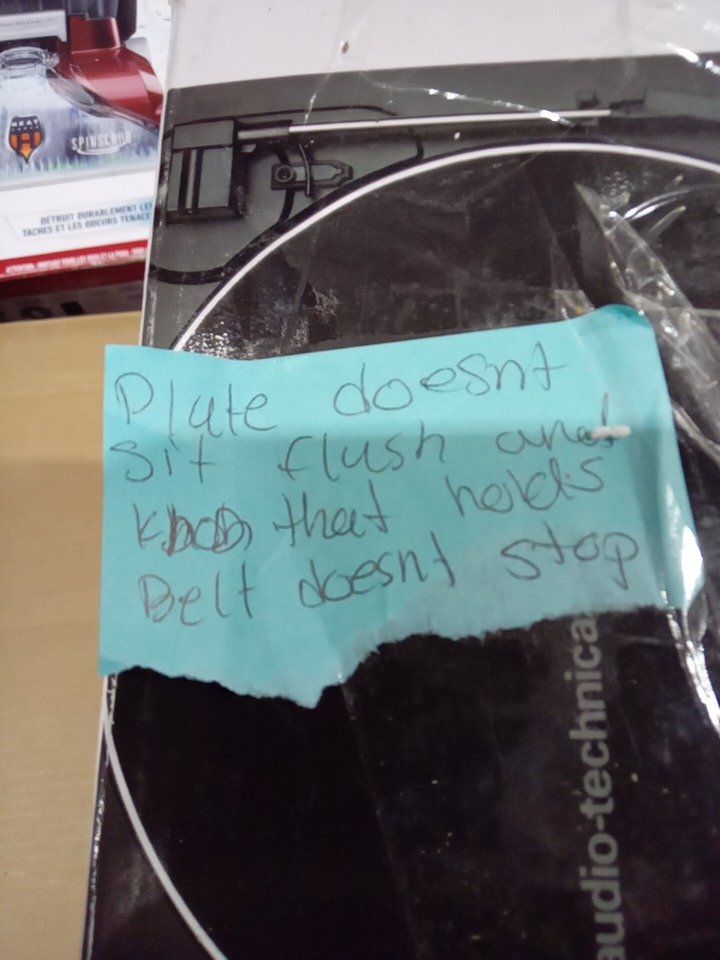 HEAT
SPINSCRUB
DÉTRUIT DURABLEMENT LES
TACHES ET LES ODEURS TENACE
Plate doesnt
Sit flush and
knob that holds
Belt doesnt stop
audio-technica